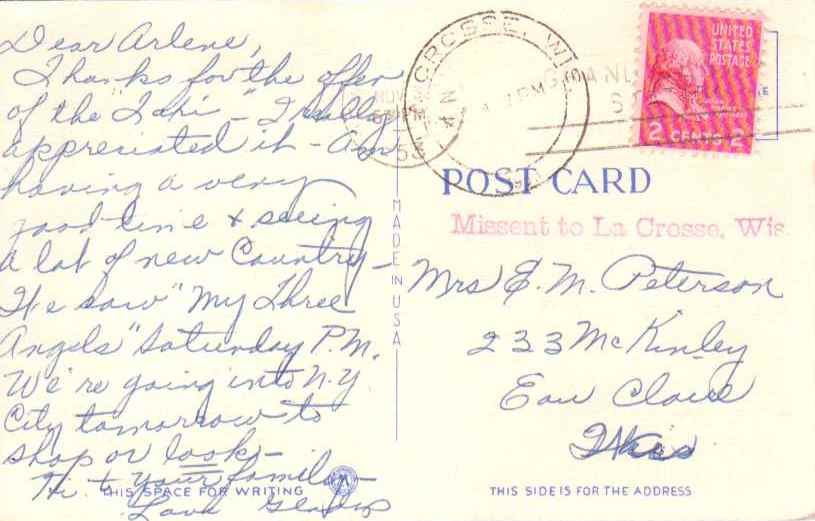 Dear Arlene,
Thanks for the offer
of the "Taki" - I really
appreciated it - Am
having a very
good time & seeing
a lot of new Country -
We saw "My Three
Angels" Saturday P.M.
We're going into N.Y.
City tomorrow to
shop or look -
Hi to your family -
Love Gladys
THIS SPACE FOR WRITING
MADE IN USA
LA CROSSE, WIS
PM
NOV
PM
53
UNITED
STATES
POSTAGE
2 CENTS 2
POST CARD
Missent to La Crosse, Wis.
Mrs E. M. Peterson
233 McKinley
Eau Claire
Wis
THIS SIDE IS FOR THE ADDRESS